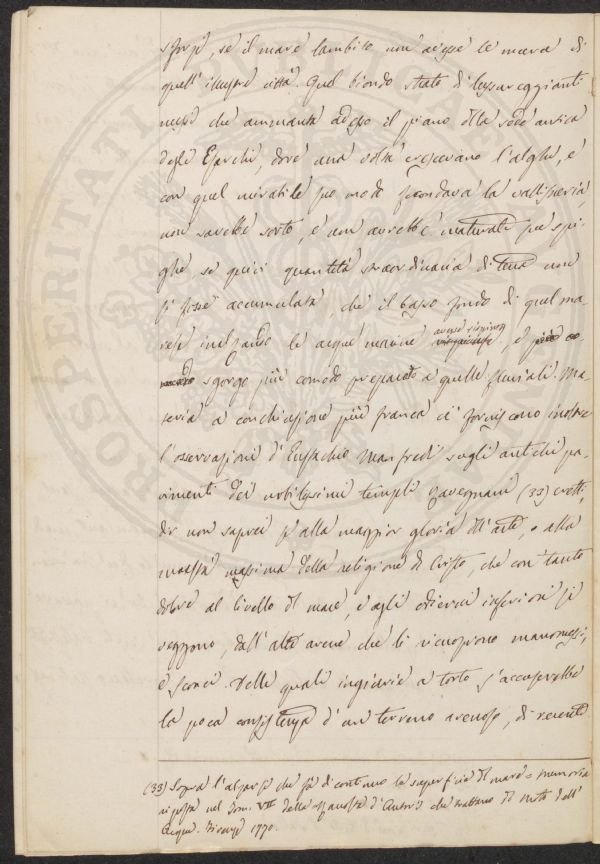 sforzi, se il mare lambito non avesse le mura di
quell' illustre città. Quel biondo strato di lussureggianti
messi che ammanta adesso il piano della sede antica
degli Esarchi, dove una volta crescevano l'alghe, e
con quel mirabile suo modo fecondava la vallisneria,
non sarebbe sorto, e non avrebbe maturate sue spi-
ghe se quivi quantità straordinaria di terra non
si fosse accumulata, che il basso fondo di quel ma-
re innalzando le acque marine avesse respinto, e
sgorgo più comodo preparato a quelle fluviali. Ma-
teria a conchiusione più franca ci forniscono inoltre
l'osservazioni d'Eustachio Manfredi sugli antichi pa-
vimenti dei nobilissimi templi ravegnani (33) eretti,
dir non saprei se alla maggior gloria dell'arte, o alla
massima della religione di Cristo, che con tanto
al livello del mare, e agli odierni inferiori si
veggono, dall' alte arene che li ricuoprono manomessi,
e sconci. Delle quali ingiurie a torto s'accuserebbe
la poca consistenza d'un terreno arenoso, di recente
(33) Sopra l'alzarsi che fa di continuo la superficie del mare = Memoria
riposta nel Tom. VII della raccolta d'Autori che trattano del moto dell'
Acque. Firenze 1770.